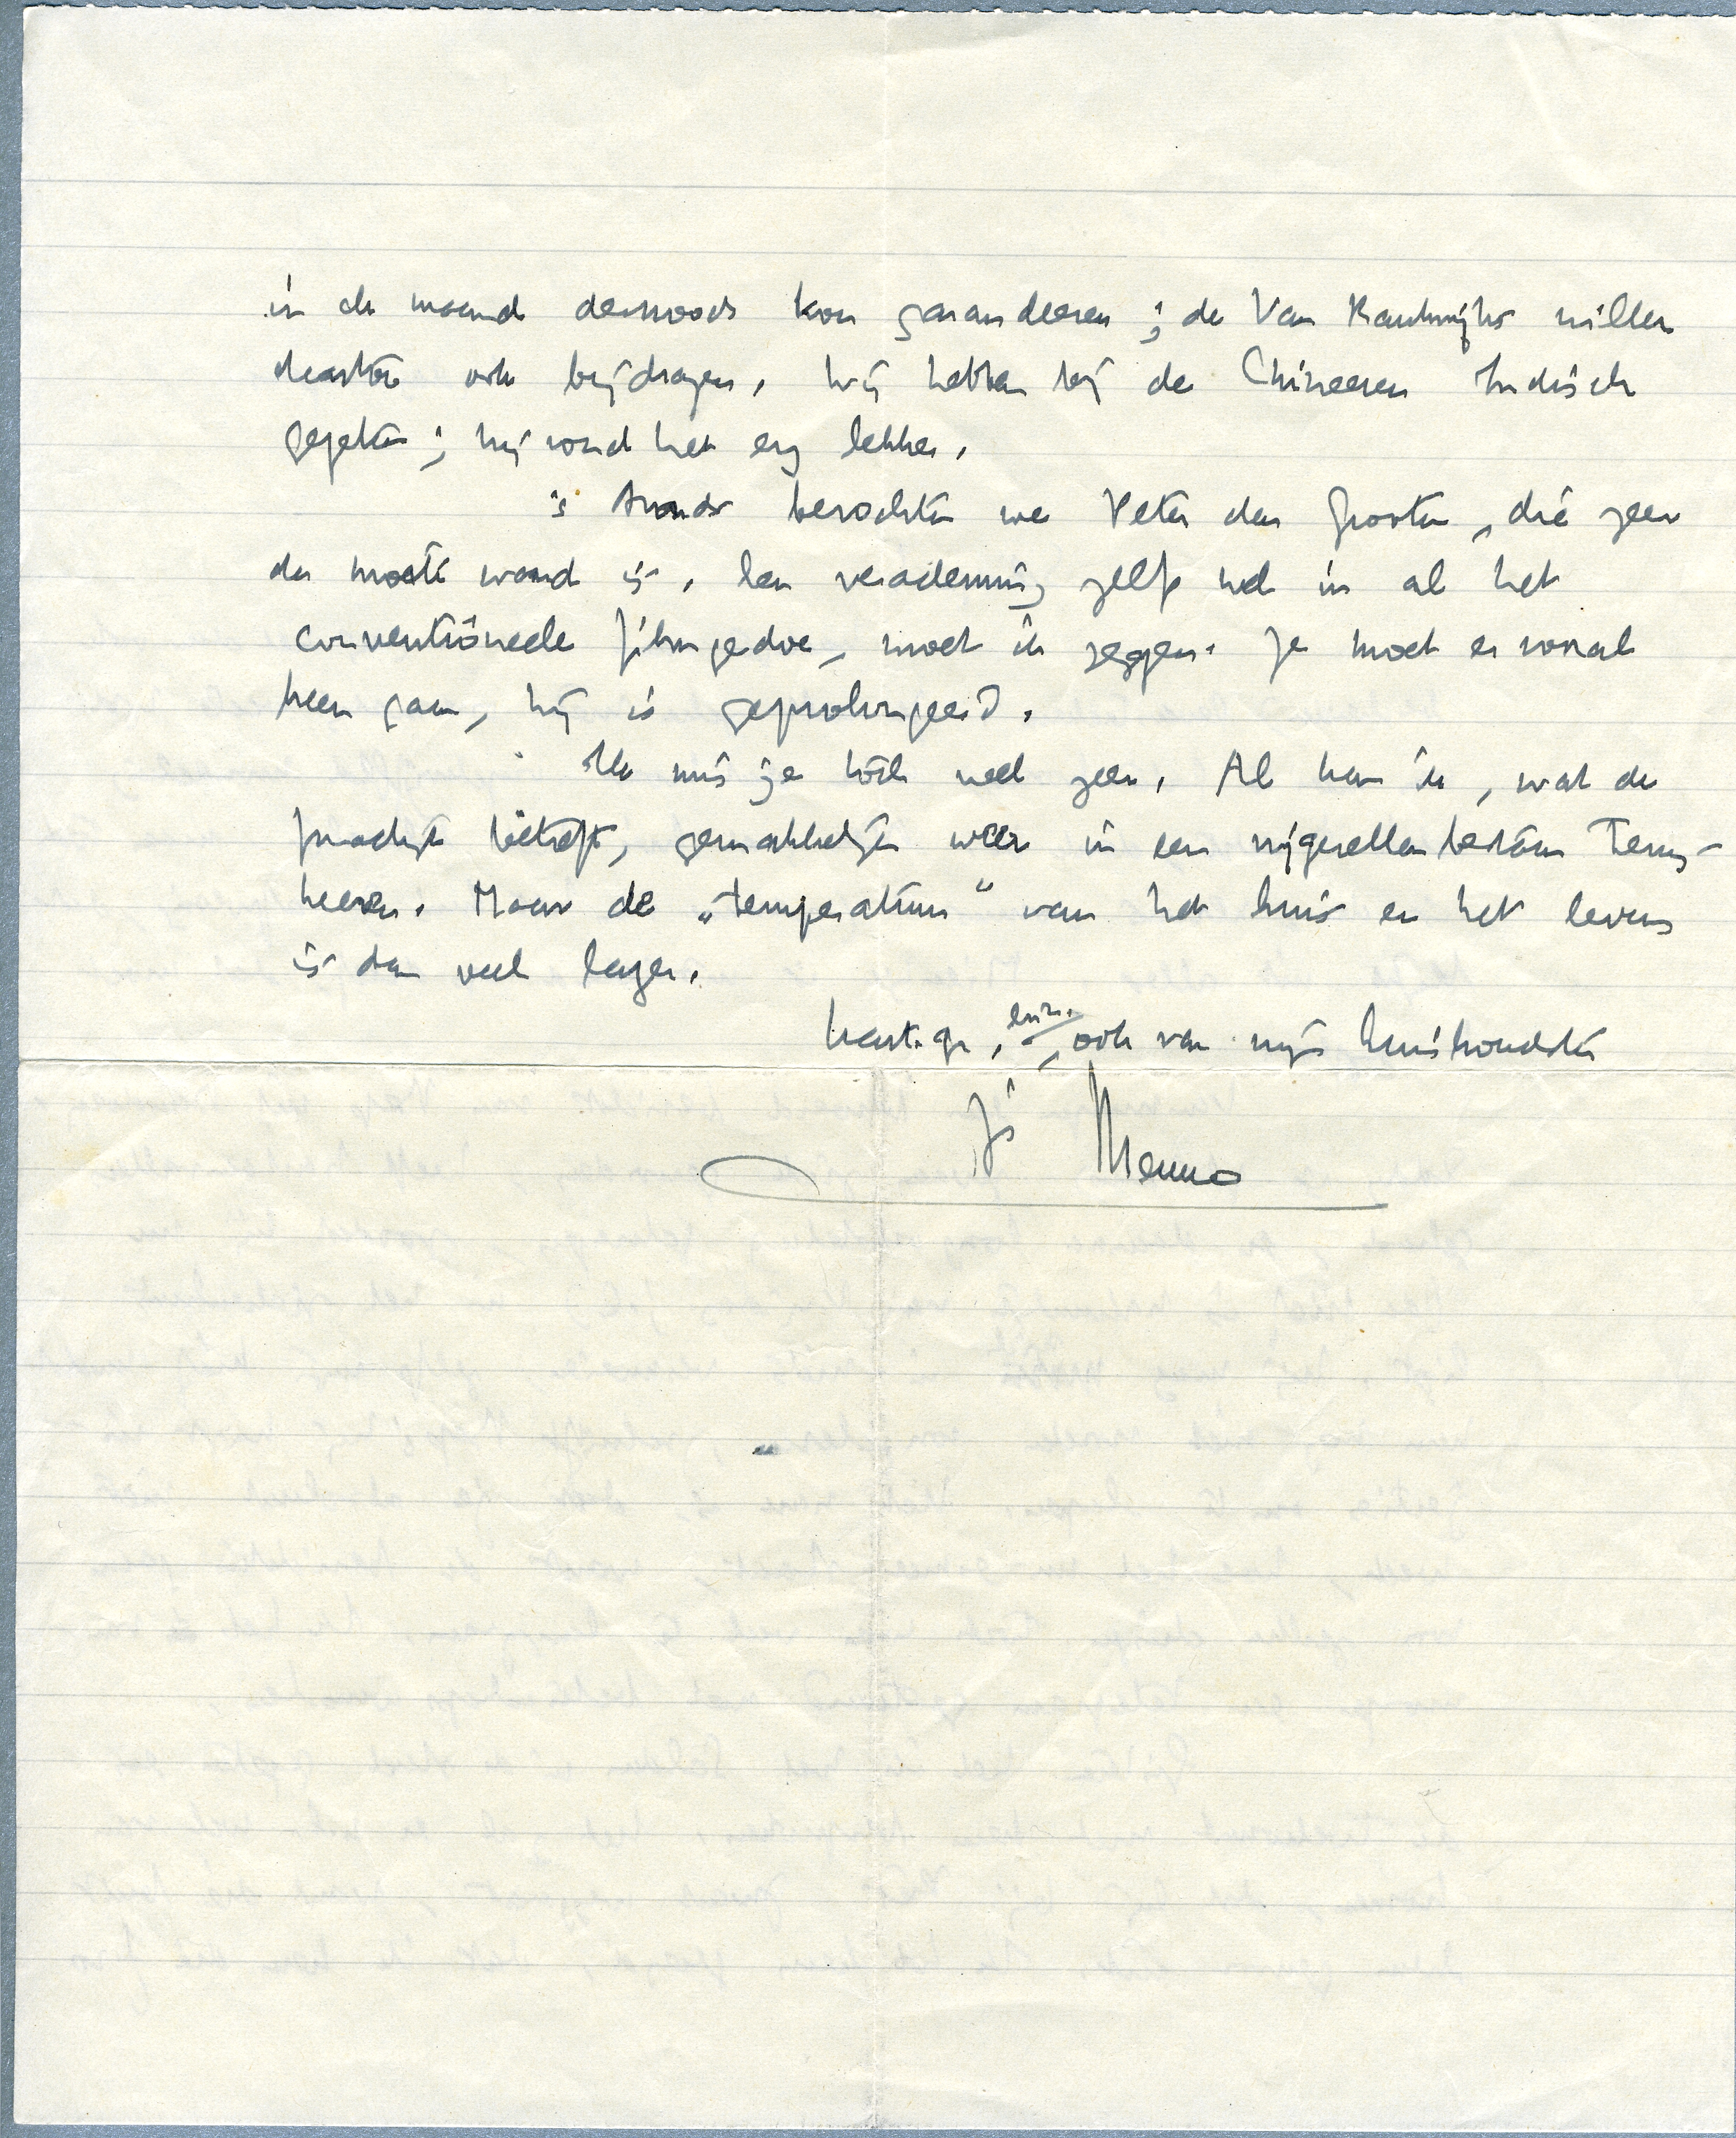 in de maand desnoods kon garandeeren; de Van Kranendijks willen
daartoe ook bijdragen. Wij hebben bij de Chineezen Indisch
gegeten; hij vond het erg lekker.
's Avonds bezochten we Peter den Grooten, die zeer
de moeite waard is. Een verademing zelfs wel in al het
conventioneele filmgedoe, moet ik zeggen. Je moet er vooral
heen gaan, hij is geprolongeerd.
Ik mis je toch veel zeer. Al kan ik, wat de
practijk betreft, gemakkelijk weer in een vrijgezellenbestaan terug-
keeren. Maar de „temperatuur” van het huis en het leven
is dan veel lager.
hart. gr., enz., ook van mijn huishoudster
je Menno